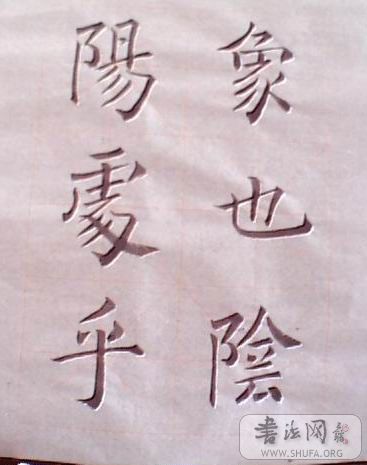 象也陰
陽處乎
書法网
WWW.SHUFA.ORG